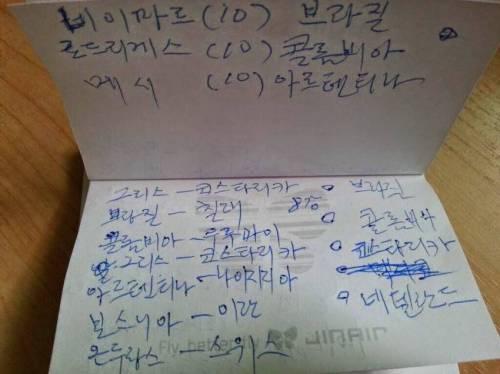 네이마르 (10) 브라질
로드리게스 (10) 콜롬비아
메시 (10) 아르텐티나
그리스 - 코스타리카
브라질 - 칠레 8강
콜롬비아 - 우루과이
그리스 - 코스타리카
아르텐티나 - 나이지리아
보스니아 - 이란
온두라스 - 스위스
브라질
콜롬비아
코스타리카
네델란드
Fly, better fly JINAIR